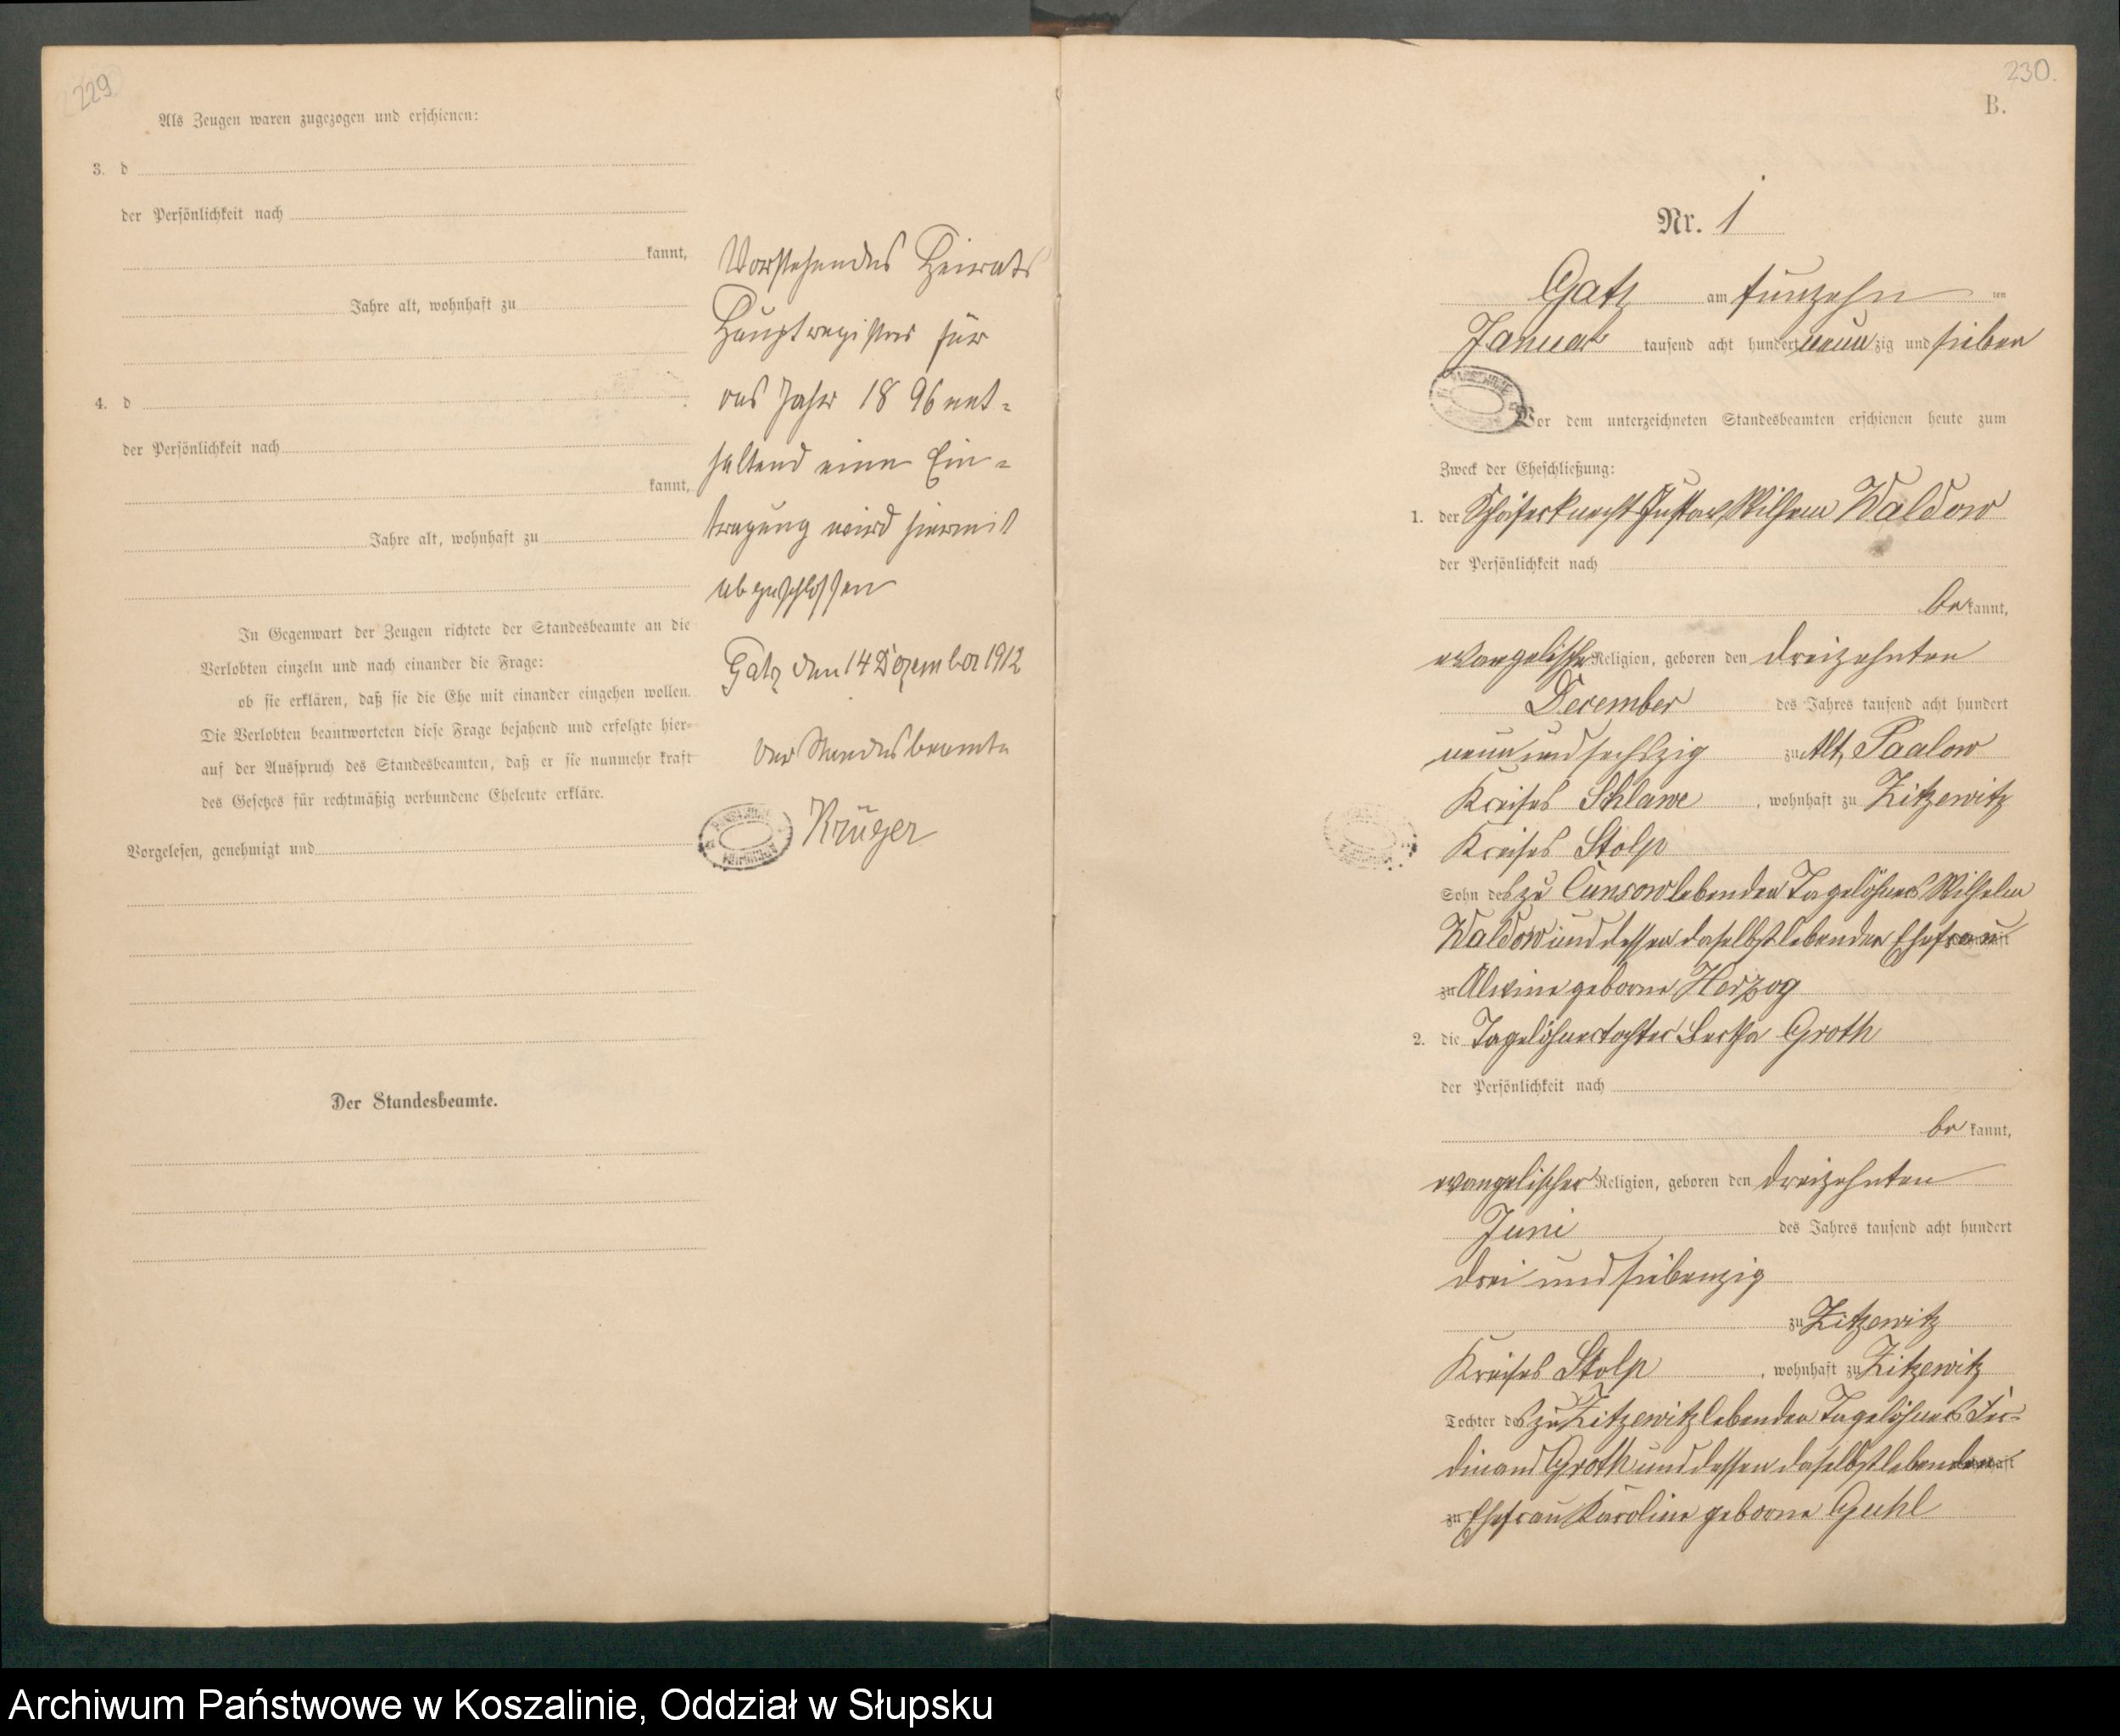 229
Als Zeugen waren zugezogen und erschienen:
3. d
der Persönlichkeit nach
kannt,
Jahre alt, wohnhaft zu
4. d
der Persönlichkeit nach
kannt,
Jahre alt, wohnhaft zu
In Gegenwart der Zeugen richtete der Standesbeamte an die
Verlobten einzeln und nach einander die Frage:
ob sie erklären, daß sie die Ehe mit einander eingehen wollen.
Die Verlobten beantworteten diese Frage bejahend und erfolgte hier-
auf der Ausspruch des Standesbeamten, daß er sie nunmehr kraft
des Gesetzes für rechtmäßig verbundene Eheleute erkläre.
Vorgelesen, genehmigt und
Der Standesbeamte.
Vorstehendes Heirats
Hauptregister für
das Jahr 1896 ent-
haltend eine Ein-
tragung wird hiermit
abgeschlossen
Gatz den 14 Dezember 1912
Der Standesbeamte
Krüger
230.
B.
Nr. 1
Gatz am fünzehn ten
Januar tausend acht hundert neun zig und sieben
Vor dem unterzeichneten Standesbeamten erschienen heute zum
Zweck der Eheschließung:
1. der Schäferknecht Gustav Wilhelm Waldow
der Persönlichkeit nach
be kannt,
evangelischer Religion, geboren den dreizehnten
December des Jahres tausend acht hundert
neun und sechszig zu Alt Paalow
Kreises Schlawe, wohnhaft zu Zitzewitz
Kreises Stolp
Sohn des zu Cunsow lebenden Tagelöhners Wilhelm
Waldow und dessen daselbst lebenden Ehefrau
zu Alwine geborne Herzog
2. die Tagelöhnertochter Bertha Groth
der Persönlichkeit nach
be kannt,
evangelischer Religion, geboren den dreizehnten
Juni des Jahres tausend acht hundert
drei und siebenzig
zu Zitzewitz
Kreises Stolp, wohnhaft zu Zitzewitz
Tochter des zu Zitzewitz lebenden Tagelöhners Fer-
dinand Groth und dessen daselbst lebenden
zu Ehefrau Karoline geborne Guhl
Archiwum Państwowe w Koszalinie, Oddział w Słupsku